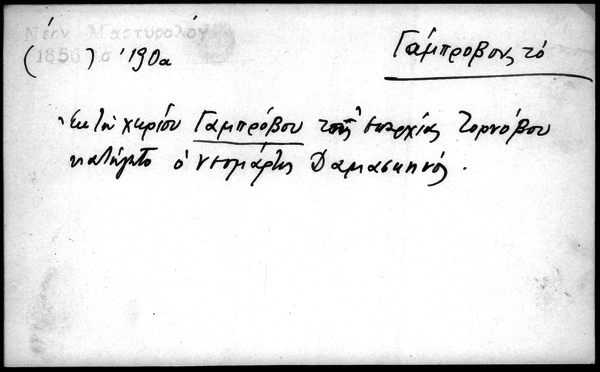 Νέον Μαρτυρολόγ
(1856) σ 190α
Γάμπροβον, τό
Ἐκ τοῦ χωρίου Γαμπρόβου τῆς ἐπαρχίας Τορνόβου
κατήγετο ὁ νεομάρτυς Δαμασκηνός.